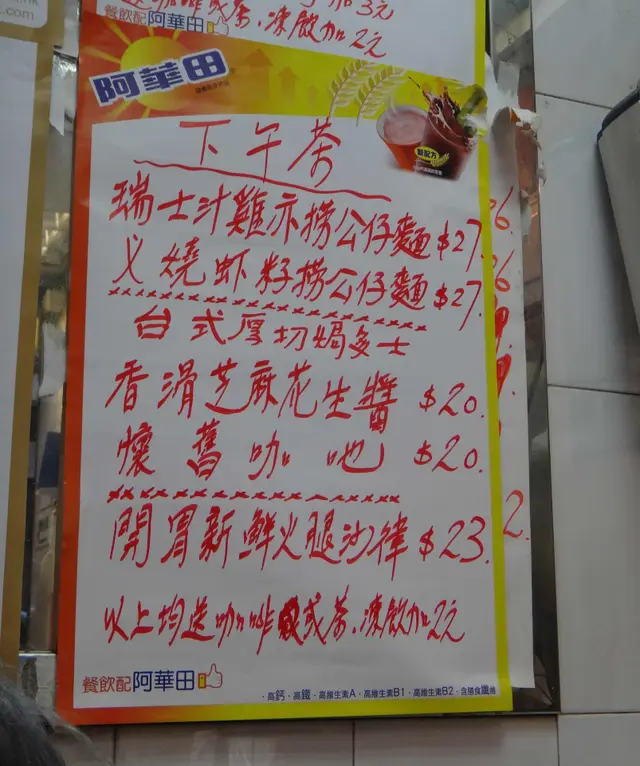 加3元
餐飲配阿華田
咖啡或茶.凍飲加2元
阿華田
新配方
下午茶
瑞士汁雞亦捞公仔麵 $27.
义燒虾籽捞公仔麵 $27.
台式厚切焗多士
香滑芝麻花生醬 $20.
懷舊咖吔 $20.
開胃新鮮火腿沙律 $23.
以上均送咖啡或茶.凍飲加2元
餐飲配阿華田
·高鈣·高鐵·高維生素A·高維生素B1·高維生素B2·含膳食纖維